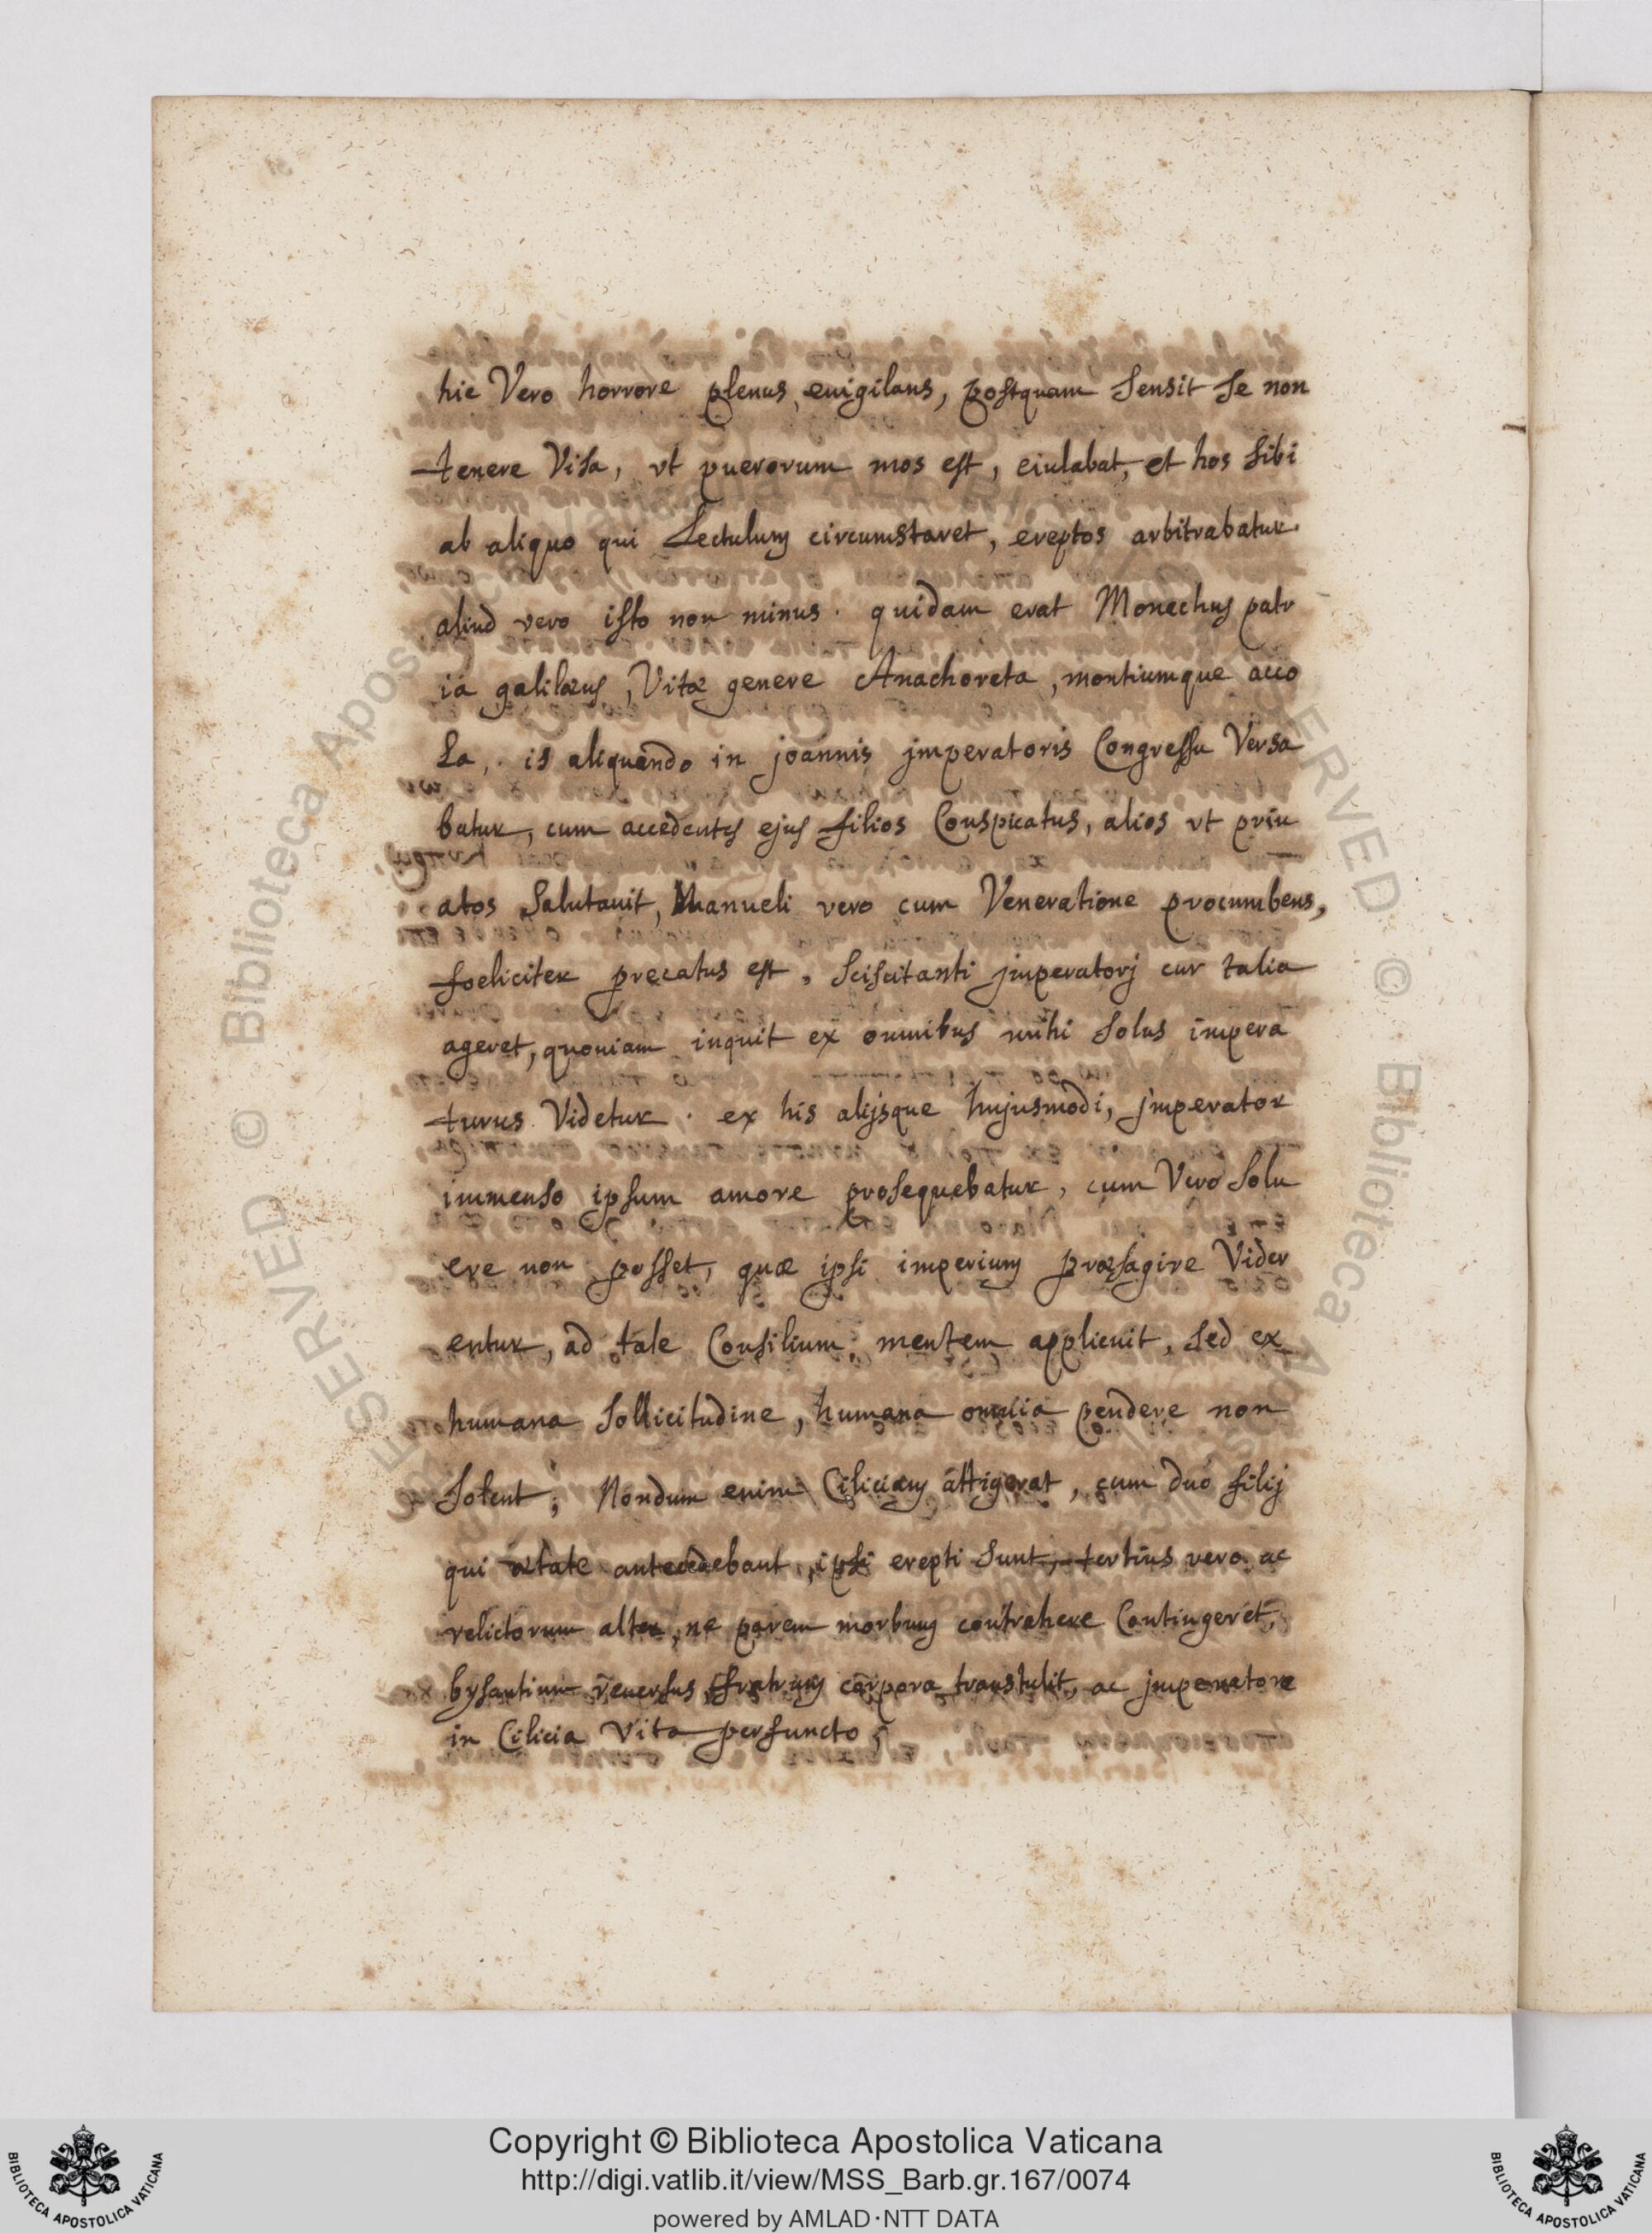 hic Vero horrore plenus, euigilans, postquam Sensit se non
tenere Visa, vt puerorum mos est, eiulabat, et hos sibi
ab aliquo qui Lectulum circumstaret, ereptos arbitrabatur
aliud vero isto non minus. quidam erat Monachus patr
ia galilæus, Vitæ genere Anachoreta, montiumque acco
La, is aliquando in joannis jmperatoris Congressu Versa
batur, cum accedentes ejus filios Conspicatus, alios vt priu
atos Salutauit, Manueli vero cum Veneratione procumbens,
foeliciter precatus est, Sciscitanti jmperatorj cur talia
ageret, quoniam inquit ex omnibus mihi Solus impera
turus Videtur. ex his alijsque hujusmodi, jmperator
immenso ipsum amore prosequebatur, cum Vero Solu
ere non posset, quæ ipsi imperium præsagire Vider
entur, ad tale Consilium mentem applicuit, Sed ex
humana Sollicitudine, humana omnia pendere non
Solent; Nondum enim Ciliciam attigerat, cum duo filij
qui ætate antecedebant, ipsi erepti Sunt, tertius vero ac
relictorum alter, ne parem morbum contrahere Contingeret,
bysantium reuersus fratrum corpora transtulit, ac jmperatore
in Cilicia Vita perfuncto,
RESERVED © Biblioteca Apostolica Vaticana
Copyright © Biblioteca Apostolica Vaticana
http://digi.vatlib.it/view/MSS_Barb.gr.167/0074
powered by AMLAD·NTT DATA
BIBLIOTECA APOSTOLICA VATICANA
BIBLIOTECA APOSTOLICA VATICANA